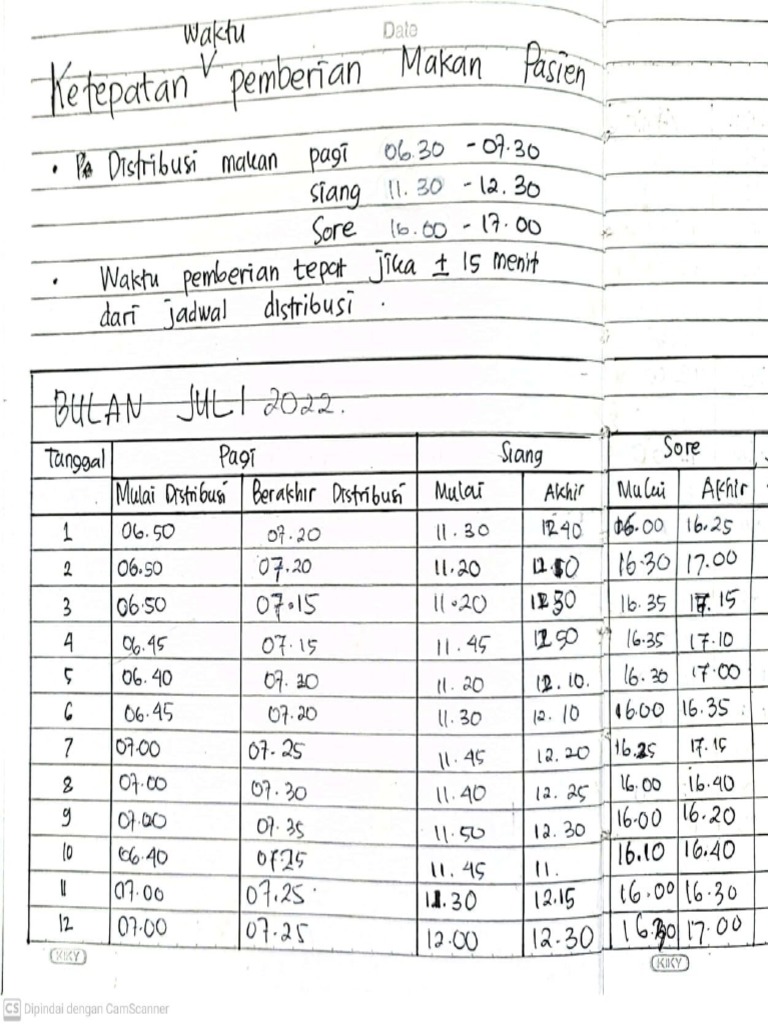 Date
Waktu
Ketepatan V pemberian Makan Pasien
• Distribusi makan pagi 06.30 - 07.30
siang 11.30 - 12.30
Sore 16.00 - 17.00
• Waktu pemberian tepat jika ± 15 menit
dari jadwal distribusi.
BULAN JULI 2022.
Tanggal Pagi Siang Sore
Mulai Distribusi Berakhir Distribusi Mulai Akhir Mulai Akhir
1 06.50 07.20 11.30 12.40 16.00 16.25
2 06.50 07.20 11.20 16.30 17.00
3 06.50 07.15 11.20 12.30 16.35 17.15
4 06.45 07.15 11.45 12.50 16.35 17.10
5 06.40 11.20 12.10. 16.30 17.00
6 06.45 07.20 11.30 12.10 16.00 16.35
7 07.00 07.25 11.45 12.20 16.25 17.15
8 07.00 07.30 11.40 12.25 16.00 16.40
9 07.00 07.35 11.50 12.30 16.00 16.20
10 06.40 07.25 11.45 11. 16.10 16.40
11 07.00 07.25 11.30 12.15 16.00 16.30
12 07.00 07.25 12.00 12.30 16.30 17.00
KIKY KIKY
CS Dipindai dengan CamScanner